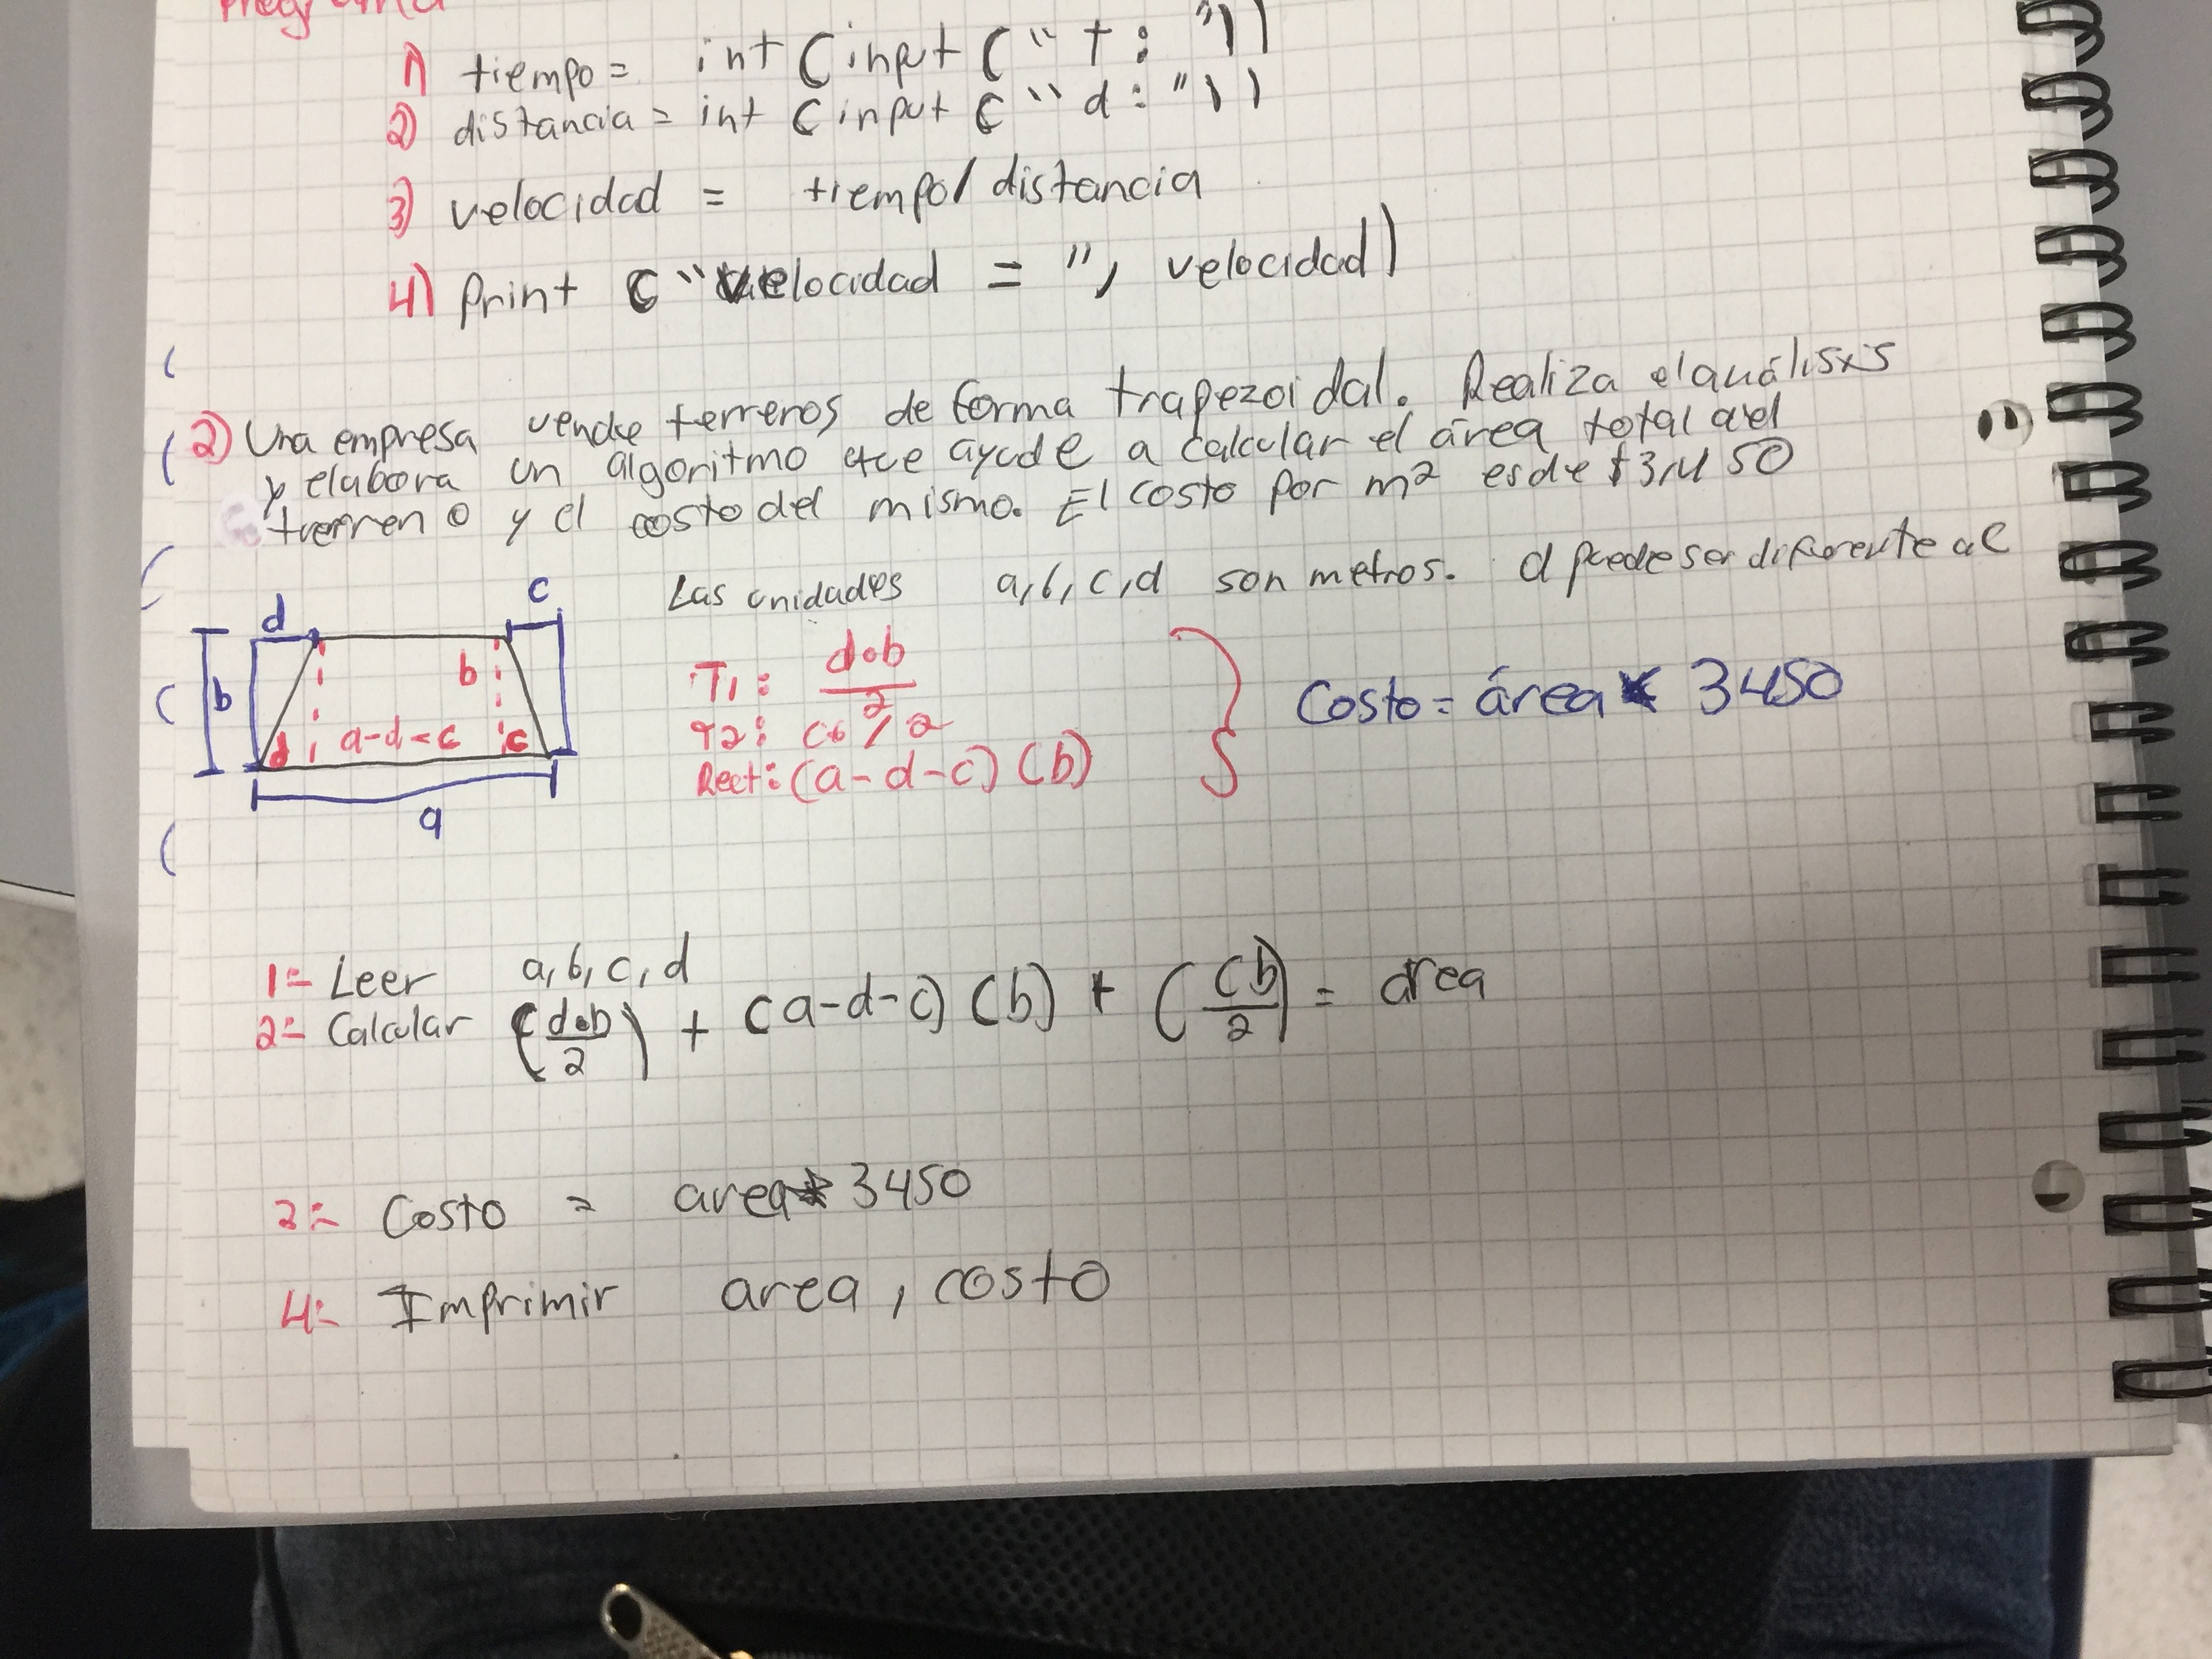 1) tiempo = int (input ("t: "))
2) distancia = int (input ("d: "))
3) velocidad = tiempo/distancia
4) print ("velocidad = ", velocidad)
2) Una empresa vende terrenos de forma trapezoidal. Realiza el análisis
y elabora un algoritmo que ayude a calcular el área total del
terreno y el costo del mismo. El costo por m² es de $3450
Las unidades a, b, c, d son metros. d puede ser diferente a c
d
c
b
b
d
a-d-c
c
a
T1: d·b
2
T2: cb/2
Rect: (a-d-c)(b)
Costo = área * 3450
1:- Leer a, b, c, d
2:- Calcular (d·b/2) + (a-d-c)(b) + (cb/2) = area
3:- Costo = area * 3450
4:- Imprimir area, costo